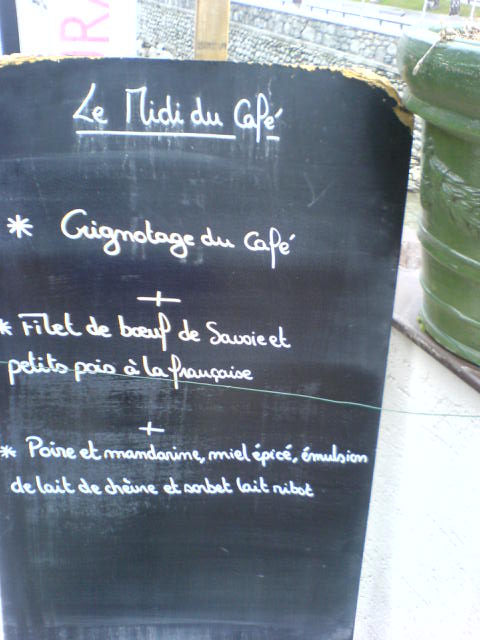 URA
Le Midi du Café
* Grignotage du Café
+
* Filet de bœuf de Savoie et
petits pois à la française
+
* Poire et mandarine, miel épicé, émulsion
de lait de chèvre et sorbet lait ribot